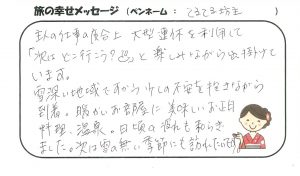 旅の幸せメッセージ（ペンネーム：てるてる坊主）
主人の仕事の都合上 大型連休を利用して
「次はどこ行こう？」と楽しみながら出掛けて
います。
雪深い地域ですから少しの不安を抱きながら
到着。暖かいお部屋に美味しいお正月
料理、温泉。日頃の疲れも和らぎ
ました。次は雪の無い季節にも訪れたいです